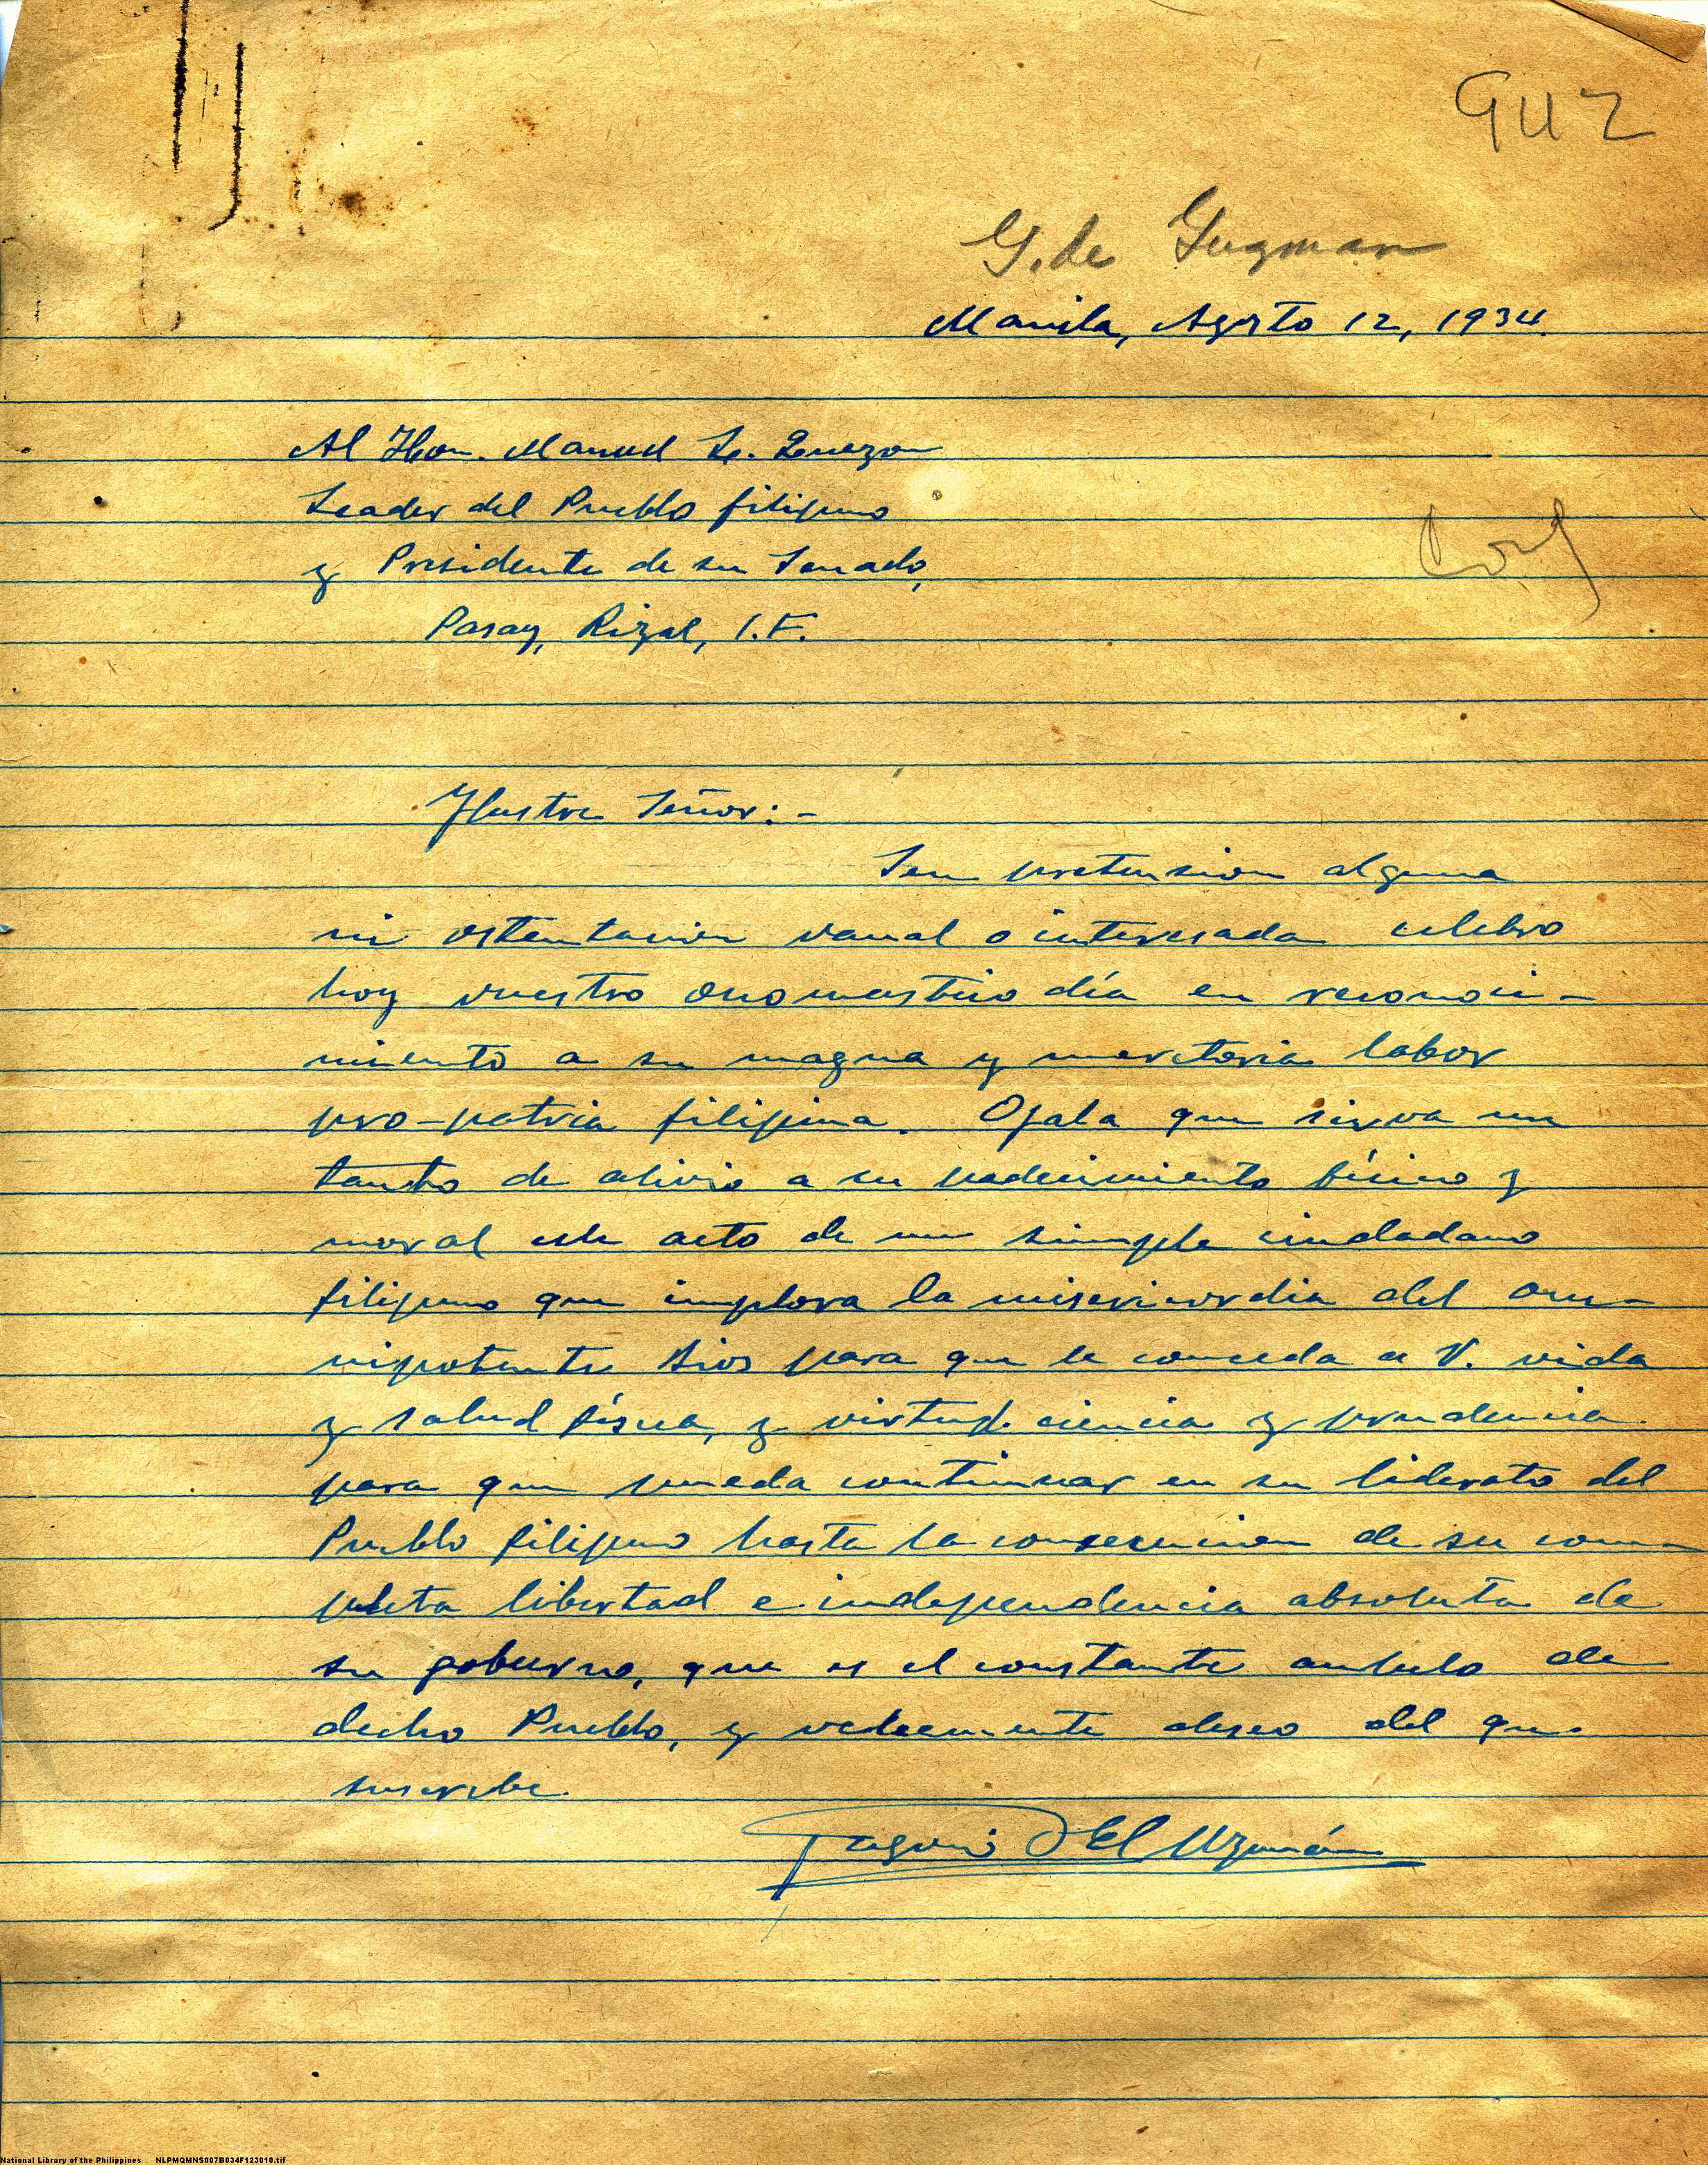 GUZ
G. de Guzman
Manila, Agosto 12, 1934.
Al Hon. Manuel L. Quezon
Leader del Pueblo filipino
y Presidente de su Senado,
Pasay, Rizal, I.F.
Ylustre Señor:-
Sin pretension alguna
ni ostentacion vanal o interesada celebro
hoy vuestro onomastico día en reconoci-
miento a su magna y meritoria labor
pro-patria filipina. Ojala que sirva un
tanto de alivio a su padecimiento físico y
moral este acto de un simple ciudadano
filipino que implora la misericordia del Om-
nipotente Dios para que le conceda a V. vida
y salud física, y virtud, ciencia y prudencia
para que pueda continuar en su liderato del
Pueblo filipino hasta la consecucion de su com-
pleta libertad e independencia absoluta de
su gobierno, que es el constante anhelo de
dicho Pueblo, y vehemente deseo del que
suscribe.
Gregorio DEL Uzmán
National Library of the Philippines NLPMQMNS007B034F123010.tif